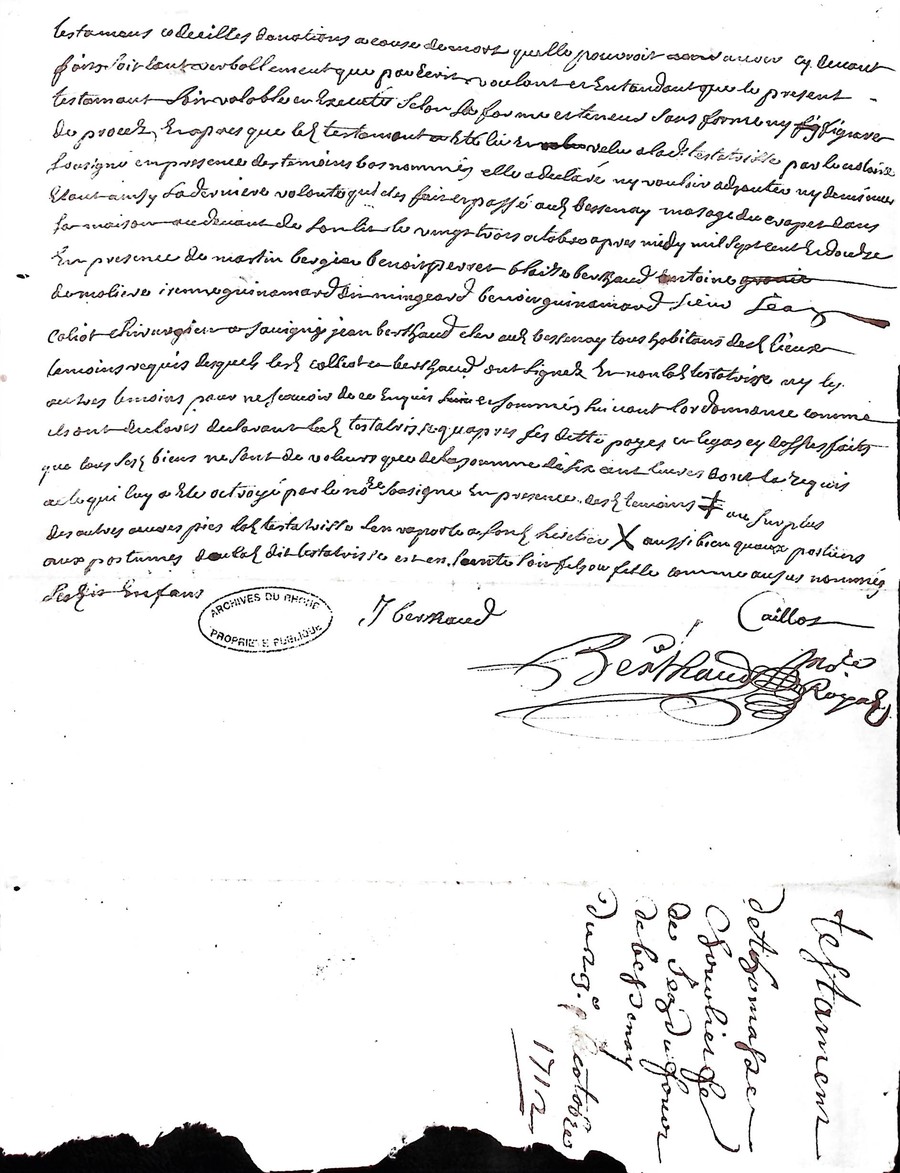 testamens codecilles donations a cause de mort quelle pouvoit avoir cy devant
faits soit tant verballement que par Ecrit voulant et Entandant que le present
testamant soit valable et Executé selon sa forme et teneur sans forme ny figure
de procez, Et apres que led testamant a Eté lu Et relu a lad. testatrisse par le notaire
sousigné en presence des temoins bas nommés elle a declaré ny vouloir adjouter ny deminuer
Etant ainsy sa derniere volonté qui des fait et passé aud bessenay masage du crapet dans
sa maison au devant de son lit le vingt trois octobre apres midy mil sept cent Et douze
En presence de martin bergier benoit perret blaise berthaud antoine
de moliere irenne guinamard benoit guinamard sieur
coliot chirurgien a savigny jean berthaud clerc aud bessenay tous habitans desd lieux
temoins requis desquels led colliot et berthaud ont signez Et non lad testatrisse ny les
autres temoins pour ne scavoir de ce Enquis et sommés suivant lordonnance comme
ils ont declarés declarant lad testatrisse quapres ses dettes payes et legas cy dessus faits
que tous sesd biens ne sont de valeurs que de la somme de six cent livres dont la requis
acte qui luy a ete octroyé par le nore sousigne En presence desd temoins ‡ au surplus
des autres lad testatrisse sen raporte a sond heretier X aussi bien quaux
aux postumes dont lad dite testatrisse est en sainte soit fils ou fille comme au sus nommés
sesdit Enfans
ARCHIVES DU RHÔNE
PROPRIETE PUBLIQUE
J berthaud
Caillot
Berthaud nore
Royal
testament
de thomasse
de jean du four
de bessenay
du 23e octobre
1712